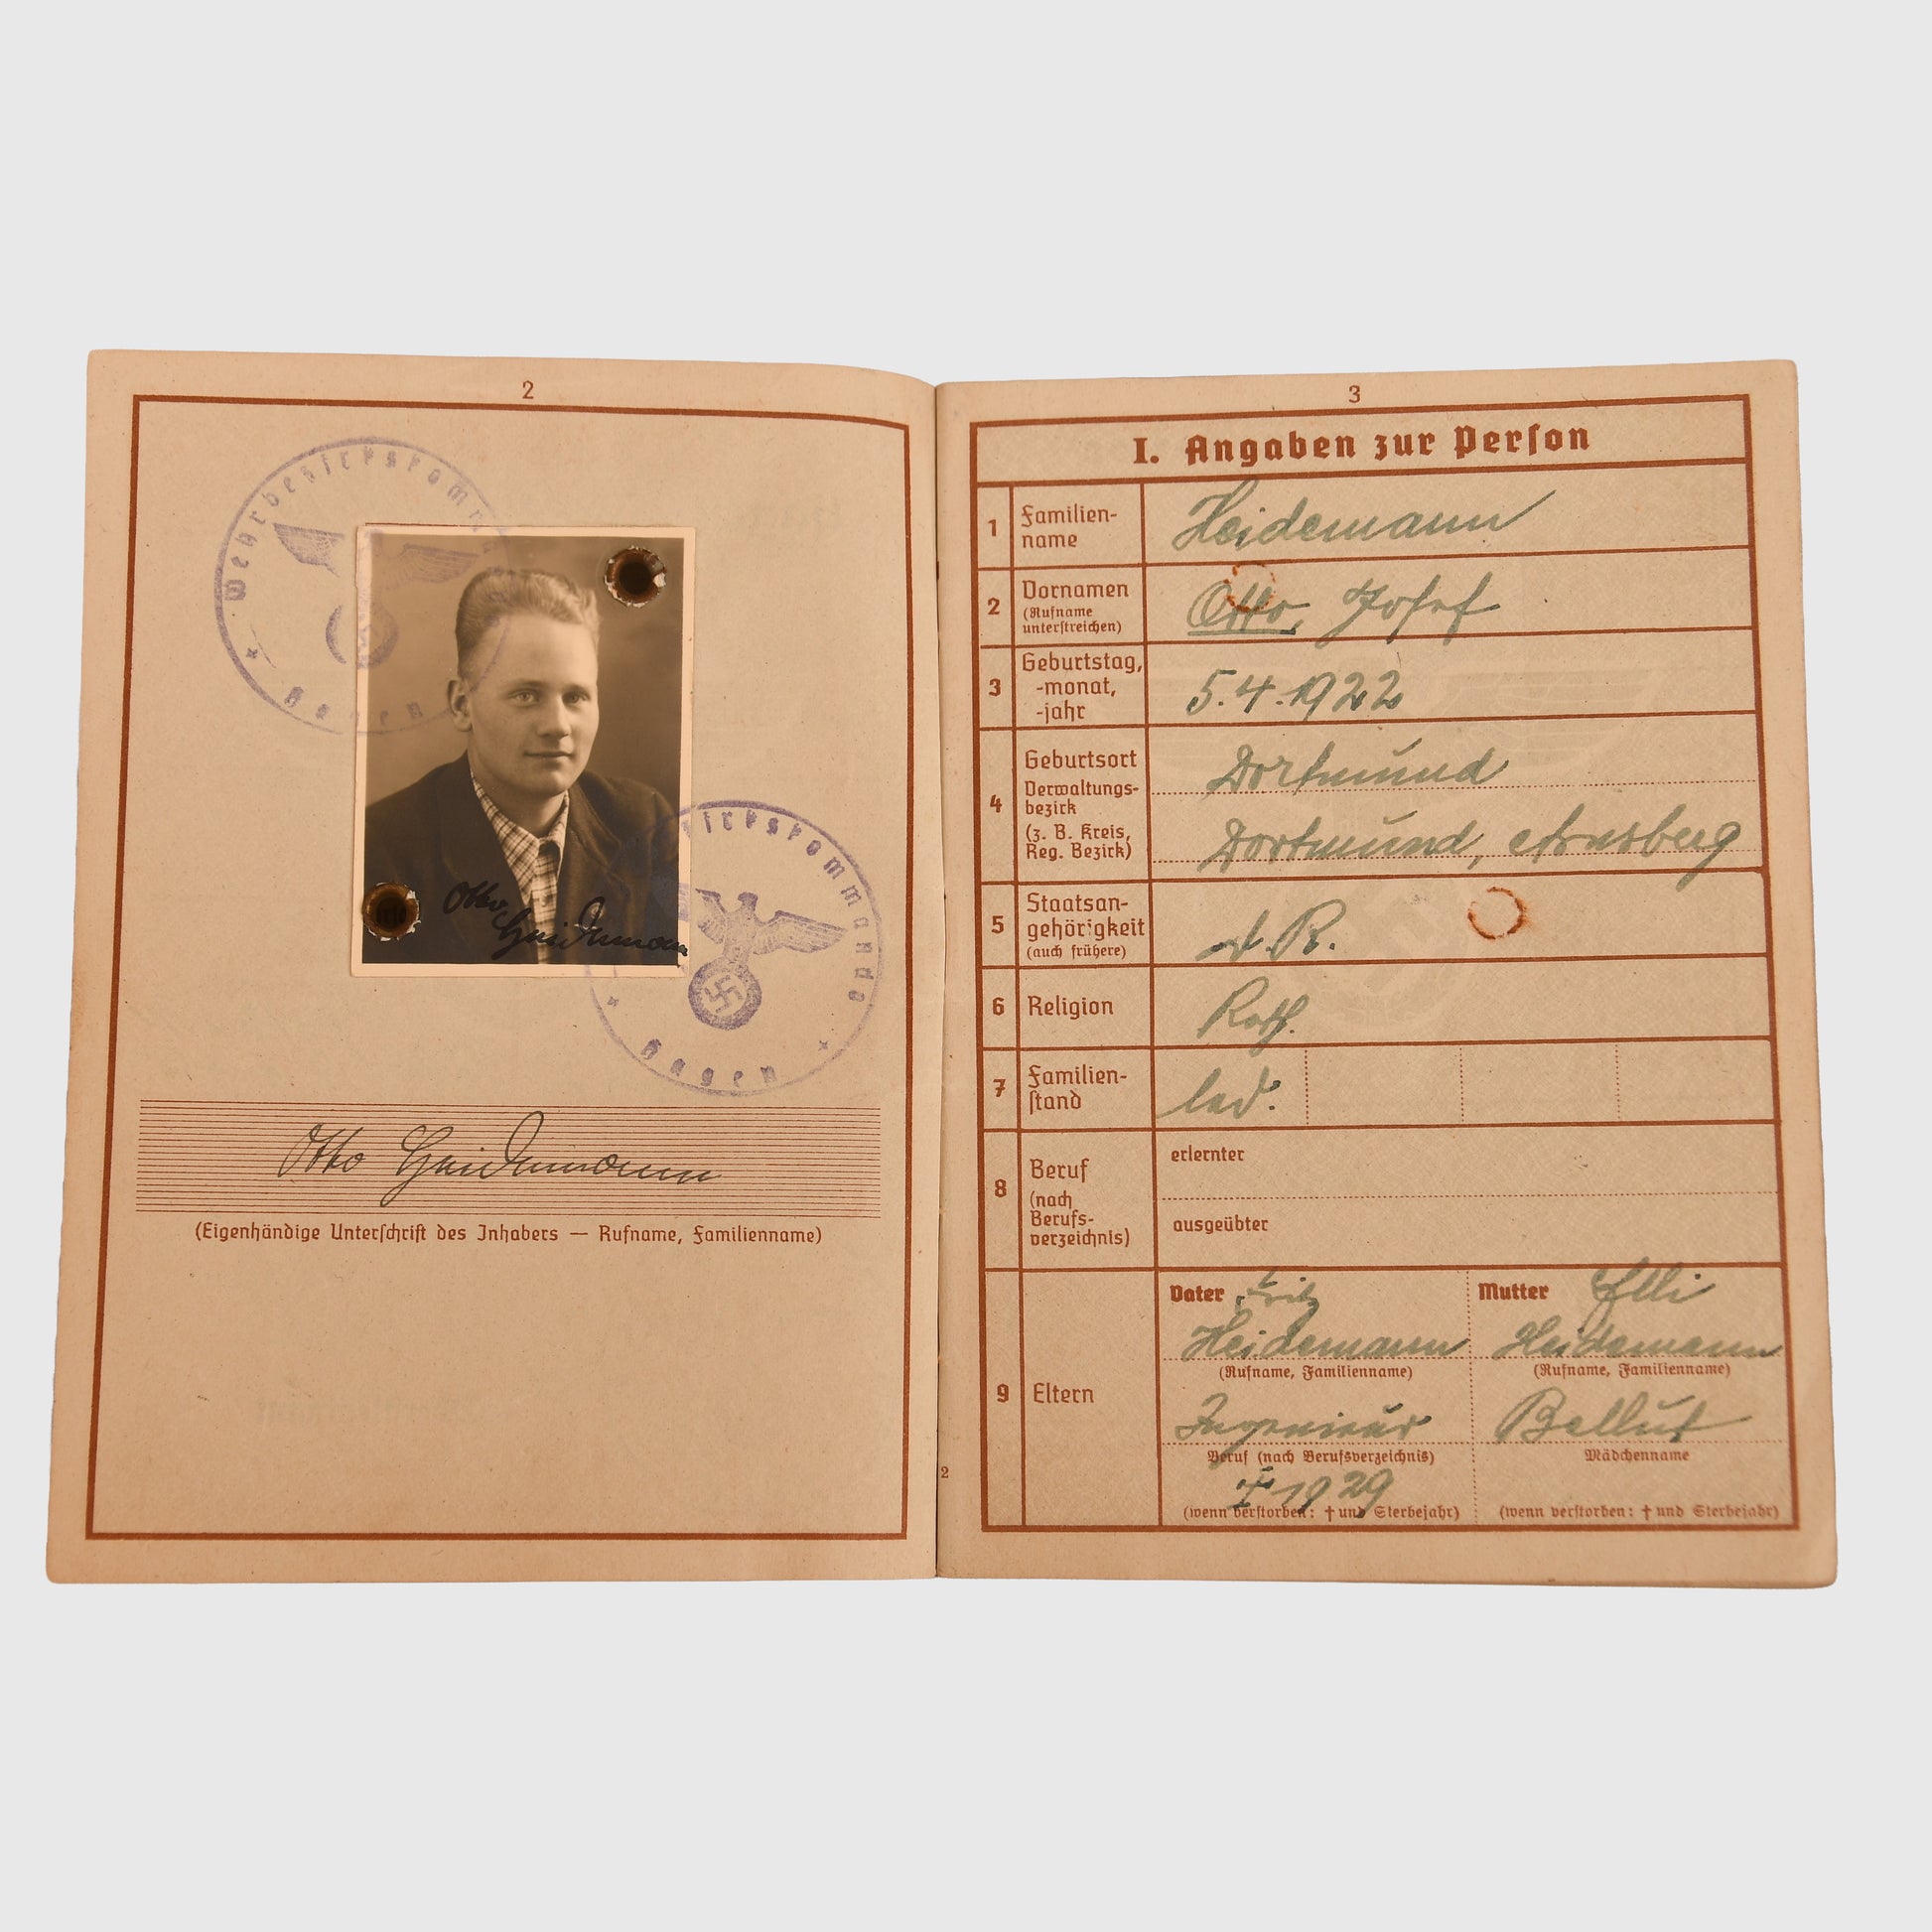 2
Wehrbezirkskomm
Hagen
Otto
Heidemann
irkskommando
Hagen
Otto Heidemann
(Eigenhändige Unterſchrift des Inhabers — Rufname, Familienname)
3
I. Angaben zur Perſon
1 Familien-
name
Heidemann
2 Vornamen
(Rufname
unterſtreichen)
Otto, Joſef
3 Geburtstag,
-monat,
-jahr
5.4.1922
4 Geburtsort
Verwaltungs-
bezirk
(z. B. Kreis,
Reg. Bezirk)
Dortmund
Dortmund, Arnsberg
5 Staatsan-
gehörigkeit
(auch frühere)
d.R.
6 Religion
Kath.
7 Familien-
ſtand
led.
8 Beruf
(nach
Berufs-
verzeichnis)
erlernter
ausgeübter
9 Eltern
Vater Fritz
Heidemann
(Rufname, Familienname)
Ingenieur
Beruf (nach Berufsverzeichnis)
† 1929
(wenn verſtorben: † und Sterbejahr)
Mutter Elli
Heidemann
(Rufname, Familienname)
Bellut
Mädchenname
(wenn verſtorben: † und Sterbejahr)
2